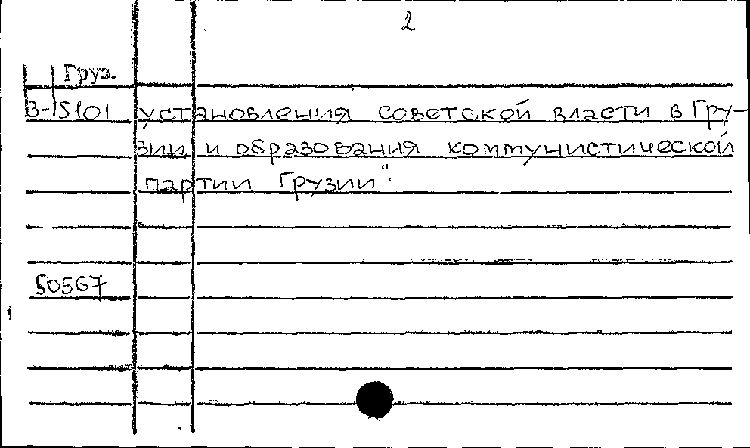 2
Груз.
В-15101 установления советской власти в Гру-
зии и образования коммунистической
партии Грузии".
50567